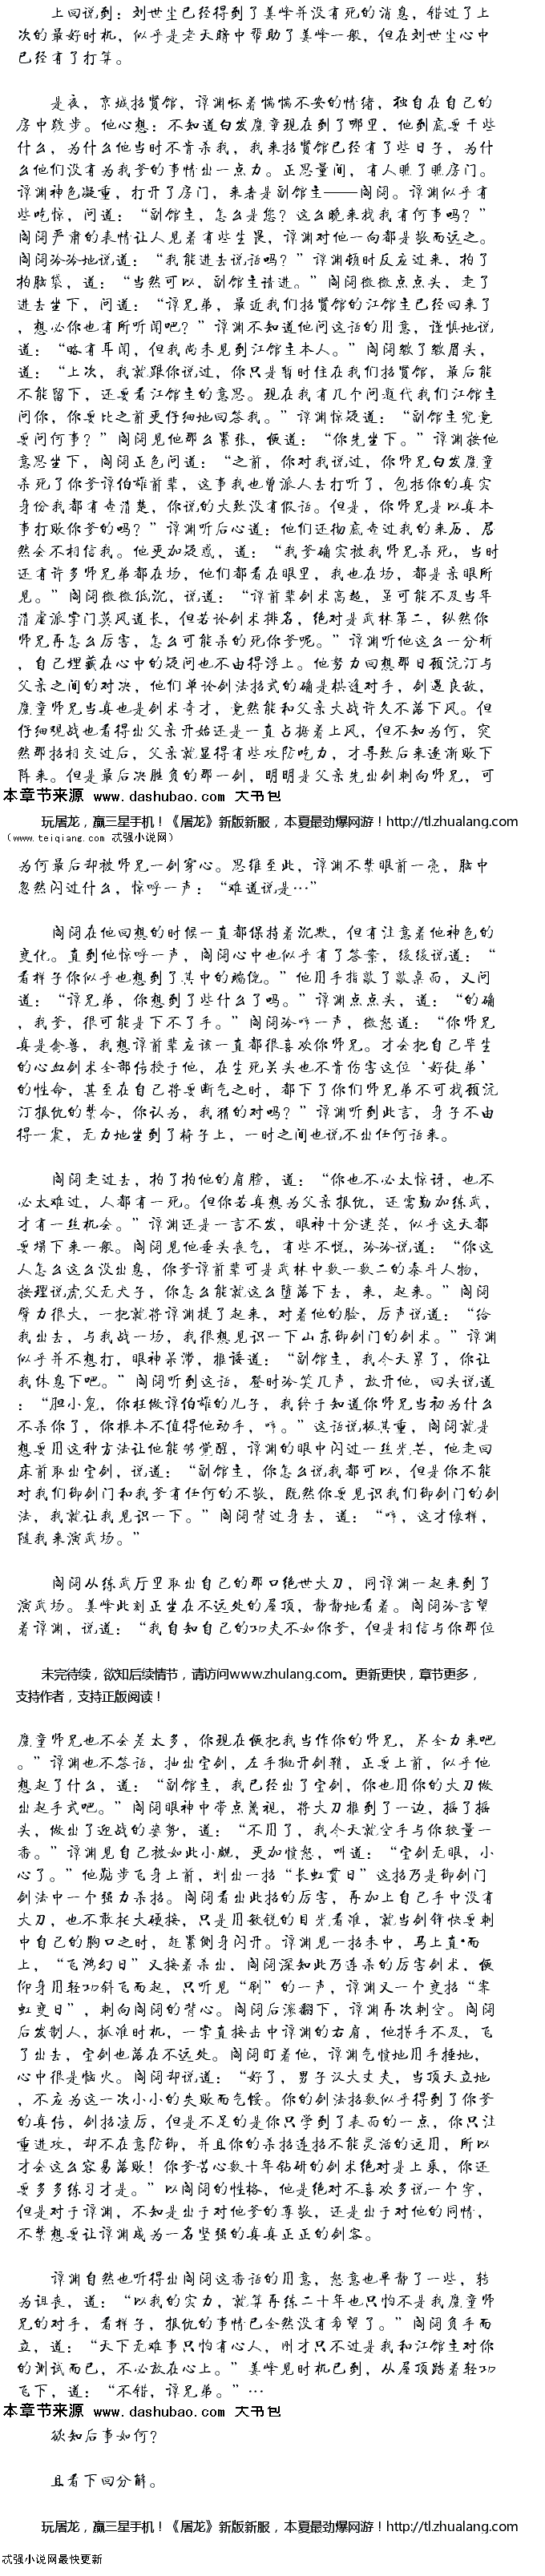 上回说到：刘世尘已经得到了姜峰并没有死的消息，错过了上
次的最好时机，似乎是老天暗中帮助了姜峰一般，但在刘世尘心中
已经有了打算。
是夜，京城招贤馆，谭渊怀着惴惴不安的情绪，独自在自己的
房中散步。他心想：不知道白发魔童现在到了哪里，他到底要干些
什么，为什么他当时不肯杀我，我来招贤馆已经有了些日子，为什
么他们没有为我爹的事情出一点力。正思量间，有人敲了敲房门。
谭渊神色凝重，打开了房门，来者是副馆主——阎阔。谭渊似乎有
些吃惊，问道：“副馆主，怎么是您？这么晚来找我有何事吗？”
阎阔严肃的表情让人见着有些生畏，谭渊对他一向都是敬而远之。
阎阔冷冷地说道：“我能进去说话吗？”谭渊顿时反应过来，拍了
拍脑袋，道：“当然可以，副馆主请进。”阎阔微微点点头，走了
进去坐下，问道：“谭兄弟，最近我们招贤馆的江馆主已经回来了
，想必你也有所听闻吧？”谭渊不知道他问这话的用意，谨慎地说
道：“略有耳闻，但我尚未见到江馆主本人。”阎阔皱了皱眉头，
道：“上次，我就跟你说过，你只是暂时住在我们招贤馆，最后能
不能留下，还要看江馆主的意思。现在我有几个问题代我们江馆主
问你，你要比之前更仔细地回答我。”谭渊惊疑道：“副馆主究竟
要问何事？”阎阔见他那么紧张，便道：“你先坐下。”谭渊按他
意思坐下，阎阔正色问道：“之前，你对我说过，你师兄白发魔童
杀死了你爹谭伯雄前辈，这事我也曾派人去打听了，包括你的真实
身份我都有查清楚，你说的大致没有假话。但是，你师兄是以真本
事打败你爹的吗？”谭渊听后心道：他们还彻底查过我的来历，居
然会不相信我。他更加疑惑，道：“我爹确实被我师兄杀死，当时
还有许多师兄弟都在场，他们都看在眼里，我也在场，都是亲眼所
见。”阎阔微微低沉，说道：“谭前辈剑术高超，虽可能不及当年
清虚派掌门莫风道长，但若论剑术排名，绝对是武林第二，纵然你
师兄再怎么厉害，怎么可能杀的死你爹呢。”谭渊听他这么一分析
，自己埋藏在心中的疑问也不由得浮上。他努力回想那日顾沅汀与
父亲之间的对决，他们单论剑法招式的确是棋逢对手，剑遇良敌，
魔童师兄当真也是剑术奇才，竟然能和父亲大战许久不落下风。但
仔细观战也看得出父亲开始还是一直占据着上风，但不知为何，突
然那招相交过后，父亲就显得有些攻防吃力，才导致后来逐渐败下
阵来。但是最后决胜负的那一剑，明明是父亲先出剑刺向师兄，可
本章节来源 www.dashubao.com 大书包
玩屠龙，赢三星手机！《屠龙》新版新服，本夏最劲爆网游！http://tl.zhualang.com
（www.teiqiang.com 忒强小说网）
为何最后却被师兄一剑穿心。思维至此，谭渊不禁眼前一亮，脑中
忽然闪过什么，惊呼一声：“难道说是…”
阎阔在他回想的时候一直都保持着沉默，但有注意着他神色的
变化。直到他惊呼一声，阎阔心中也似乎有了答案，缓缓说道：“
看样子你似乎也想到了其中的端倪。”他用手指敲了敲桌面，又问
道：“谭兄弟，你想到了些什么了吗。”谭渊点点头，道：“的确
，我爹，很可能是下不了手。”阎阔冷哼一声，微怒道：“你师兄
真是禽兽，我想谭前辈应该一直都很喜欢你师兄。才会把自己毕生
的心血剑术全部传授于他，在生死关头也不肯伤害这位‘好徒弟’
的性命，甚至在自己将要断气之时，都下了你们师兄弟不可找顾沅
汀报仇的禁令，你认为，我猜的对吗？”谭渊听到此言，身子不由
得一震，无力地坐到了椅子上，一时之间也说不出任何话来。
阎阔走过去，拍了拍他的肩膀，道：“你也不必太惊讶，也不
必太难过，人都有一死。但你若真想为父亲报仇，还需勤加练武，
才有一丝机会。”谭渊还是一言不发，眼神十分迷茫，似乎这天都
要塌下来一般。阎阔见他垂头丧气，有些不悦，冷冷说道：“你这
人怎么这么没出息，你爹谭前辈可是武林中数一数二的泰斗人物，
按理说虎父无犬子，你怎么能就这么堕落下去，来，起来。”阎阔
臂力很大，一把就将谭渊提了起来，对着他的脸，厉声说道：“给
我出去，与我战一场，我很想见识一下山东御剑门的剑术。”谭渊
似乎并不想打，眼神呆滞，推诿道：“副馆主，我今天累了，你让
我休息下吧。”阎阔听到这话，登时冷笑几声，放开他，回头说道
：“胆小鬼，你枉做谭伯雄的儿子，我终于知道你师兄当初为什么
不杀你了，你根本不值得他动手，哼。”这话说极其重，阎阔就是
想要用这种方法让他能够觉醒，谭渊的眼中闪过一丝光芒，他走回
床前取出宝剑，说道：“副馆主，你怎么说我都可以，但是你不能
对我们御剑门和我爹有任何的不敬，既然你要见识我们御剑门的剑
法，我就让我见识一下。”阎阔背过身去，道：“哼，这才像样，
随我来演武场。”
阎阔从练武厅里取出自己的那口绝世大刀，同谭渊一起来到了
演武场。姜峰此刻正坐在不远处的屋顶，静静地看着。阎阔冷言望
着谭渊，说道：“我自知自己的功夫不如你爹，但是相信与你那位
未完待续，欲知后续情节，请访问www.zhulang.com。更新更快，章节更多，
支持作者，支持正版阅读！
魔童师兄也不会差太多，你现在便把我当作你的师兄，尽全力来吧
。”谭渊也不答话，抽出宝剑，左手抛开剑鞘，正要上前，似乎他
想起了什么，道：“副馆主，我已经出了宝剑，你也用你的大刀做
出起手式吧。”阎阔眼神中带点蔑视，将大刀推到了一边，摇了摇
头，做出了迎战的姿势，道：“不用了，我今天就空手与你较量一
番。”谭渊见自己被如此小觑，更加愤怒，叫道：“宝剑无眼，小
心了。”他踮步飞身上前，划出一招“长虹贯日”这招乃是御剑门
剑法中一个强力杀招。阎阔看出此招的厉害，再加上自己手中没有
大刀，也不敢托大硬接，只是用敏锐的目光看准，就当剑锋快要刺
中自己的胸口之时，赶紧侧身闪开。谭渊见一招未中，马上直·而
上，“飞鸿幻日”又接着杀出，阎阔深知此乃连杀的厉害剑术，便
仰身用轻功斜飞而起，只听见“刷”的一声，谭渊又一个变招“霁
虹变日”，刺向阎阔的背心。阎阔后滚翻下，谭渊再次刺空。阎阔
后发制人，抓准时机，一掌直接击中谭渊的右肩，他措手不及，飞
了出去，宝剑也落在不远处。阎阔盯着他，谭渊气愤地用手捶地，
心中很是恼火。阎阔却说道：“好了，男子汉大丈夫，当顶天立地
，不应为这一次小小的失败而气馁。你的剑法招数似乎得到了你爹
的真传，剑招凌厉，但是不足的是你只学到了表面的一点，你只注
重进攻，却不在意防御，并且你的杀招连招不能灵活的运用，所以
才会这么容易落败！你爹苦心数十年钻研的剑术绝对是上乘，你还
要多多练习才是。”以阎阔的性格，他是绝对不喜欢多说一个字，
但是对于谭渊，不知是出于对他爹的尊敬，还是出于对他的同情，
不禁想要让谭渊成为一名坚强的真真正正的剑客。
谭渊自然也听得出阎阔这番话的用意，怒意也平静了一些，转
为沮丧，道：“以我的实力，就算再练二十年也只怕不是我魔童师
兄的对手，看样子，报仇的事情已全然没有希望了。”阎阔负手而
立，道：“天下无难事只怕有心人，刚才只不过是我和江馆主对你
的测试而已，不必放在心上。”姜峰见时机已到，从屋顶踏着轻功
飞下，道：“不错，谭兄弟。”…
本章节来源 www.dashubao.com 大书包
欲知后事如何？
且看下回分解。
玩屠龙，赢三星手机！《屠龙》新版新服，本夏最劲爆网游！http://tl.zhualang.com
忒强小说网最快更新